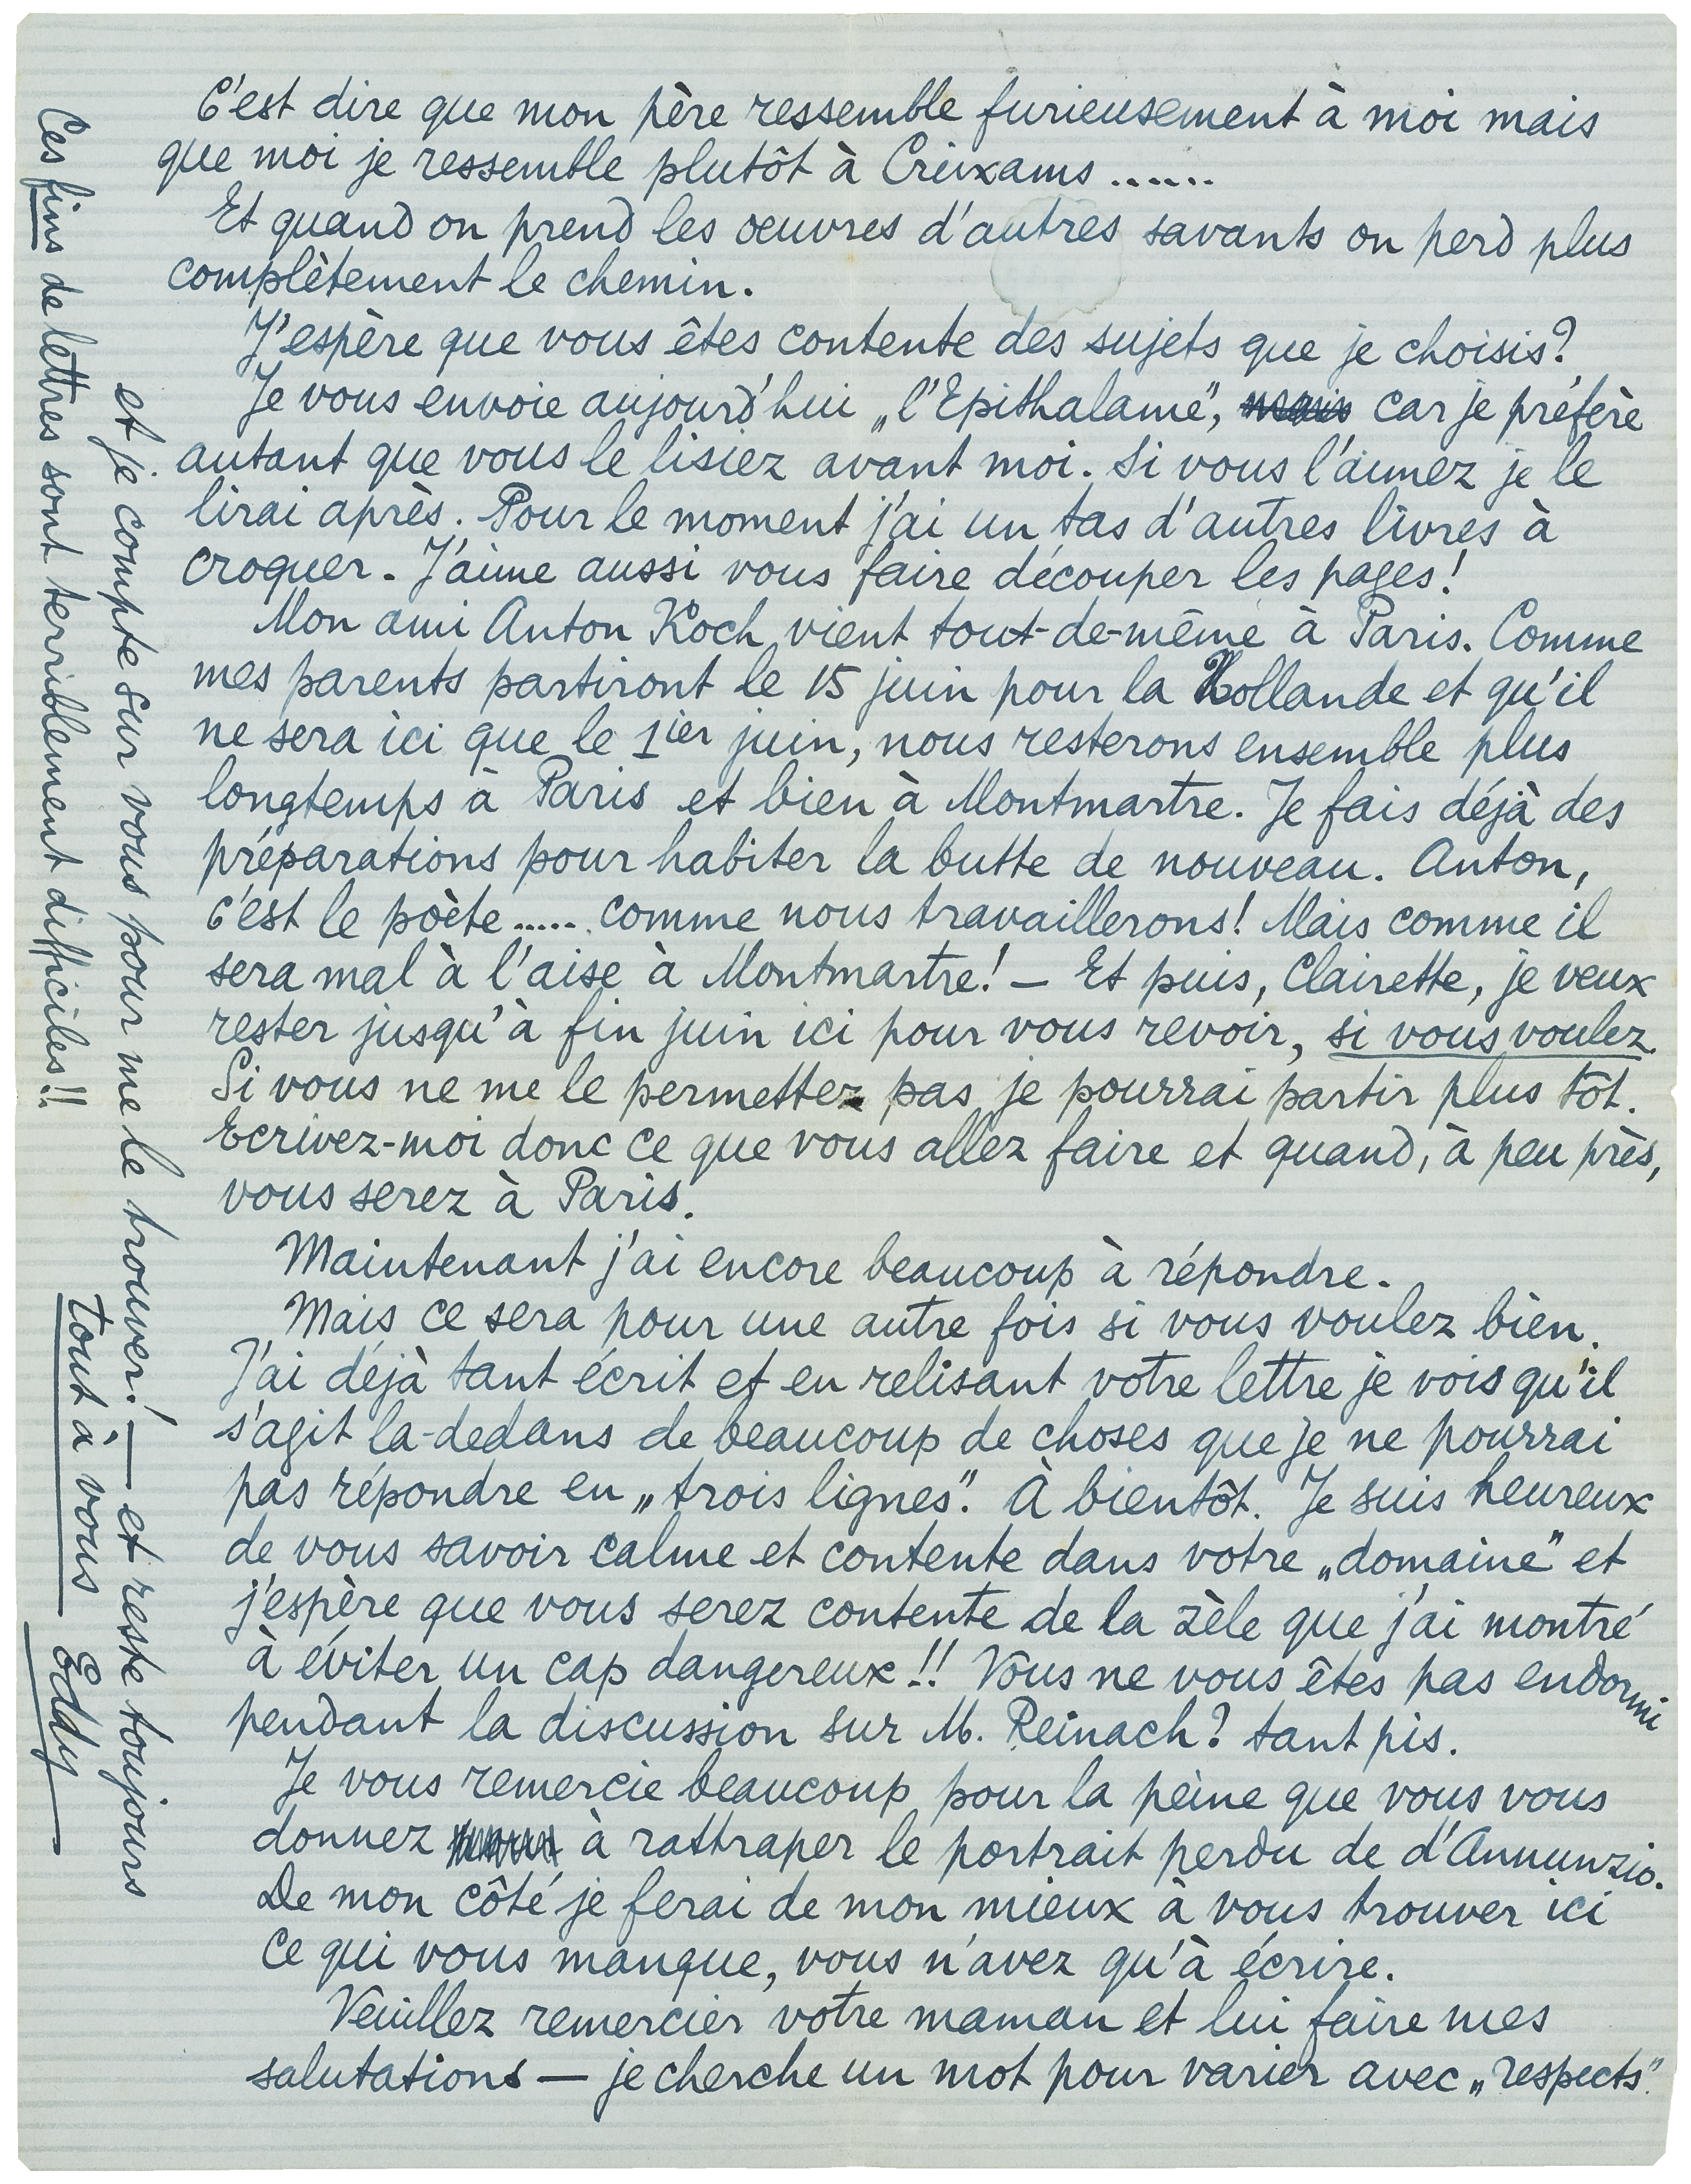 C'est dire que mon père ressemble furieusement à moi mais
que moi je ressemble plutôt à Creixams ......
Et quand on prend les oeuvres d'autres savants on perd plus
complètement le chemin.
J'espère que vous êtes contente des sujets que je choisis?
Je vous envoie aujourd'hui „l'Epithalame", mais car je préfère
autant que vous le lisiez avant moi. Si vous l'aimez je le
lirai après. Pour le moment j'ai un tas d'autres livres à
croquer. J'aime aussi vous faire découper les pages!
Mon ami Anton Koch vient tout-de-même à Paris. Comme
mes parents partiront le 15 juin pour la Hollande et qu'il
ne sera ici que le 1ier juin, nous resterons ensemble plus
longtemps à Paris et bien à Montmartre. Je fais déjà des
préparations pour habiter la butte de nouveau. Anton,
c'est le poète ..... comme nous travaillerons! Mais comme il
sera mal à l'aise à Montmartre! — Et puis, Clairette, je veux
rester jusqu'à fin juin ici pour vous revoir, si vous voulez.
Si vous ne me le permettez pas je pourrai partir plus tôt.
Ecrivez-moi donc ce que vous allez faire et quand, à peu près,
vous serez à Paris.
Maintenant j'ai encore beaucoup à répondre.
Mais ce sera pour une autre fois si vous voulez bien.
J'ai déjà tant écrit et en relisant votre lettre je vois qu'il
s'agit la-dedans de beaucoup de choses que je ne pourrai
pas répondre en „trois lignes". À bientôt. Je suis heureux
de vous savoir calme et contente dans votre „domaine" et
j'espère que vous serez contente de la zèle que j'ai montré
à éviter un cap dangereux!! Vous ne vous êtes pas endormi
pendant la discussion sur M. Reinach? tant pis.
Je vous remercie beaucoup pour la peine que vous vous
donnez à rattraper le portrait perdu de d'Annunzio.
De mon côté je ferai de mon mieux à vous trouver ici
ce qui vous manque, vous n'avez qu'à écrire.
Veuillez remercier votre maman et lui faire mes
salutations — je cherche un mot pour varier avec „respects"
et je compte sur vous pour me le trouver! — et reste toujours
tout à vous Eddy
Ces fins de lettres sont terriblement difficiles!!